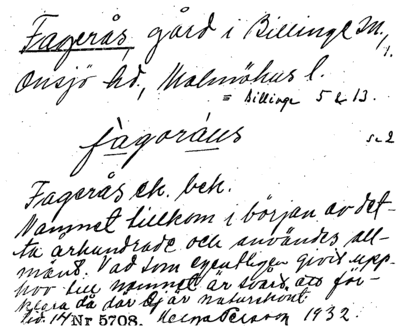 Fagerås, gård i Billinge sn,
Onsjö hd, Malmöhus l.
= Billinge 5 & 13.
fàgoráus
Fagerås ek. bek.
Namnet tillkom i början av det-
ta århundrade och användes all-
mänt. Vad som egentligen givit upp-
hov till namnet är svårt att för-
klara då där ej är naturskönt
Nr 5708. Helna Persson 1932.